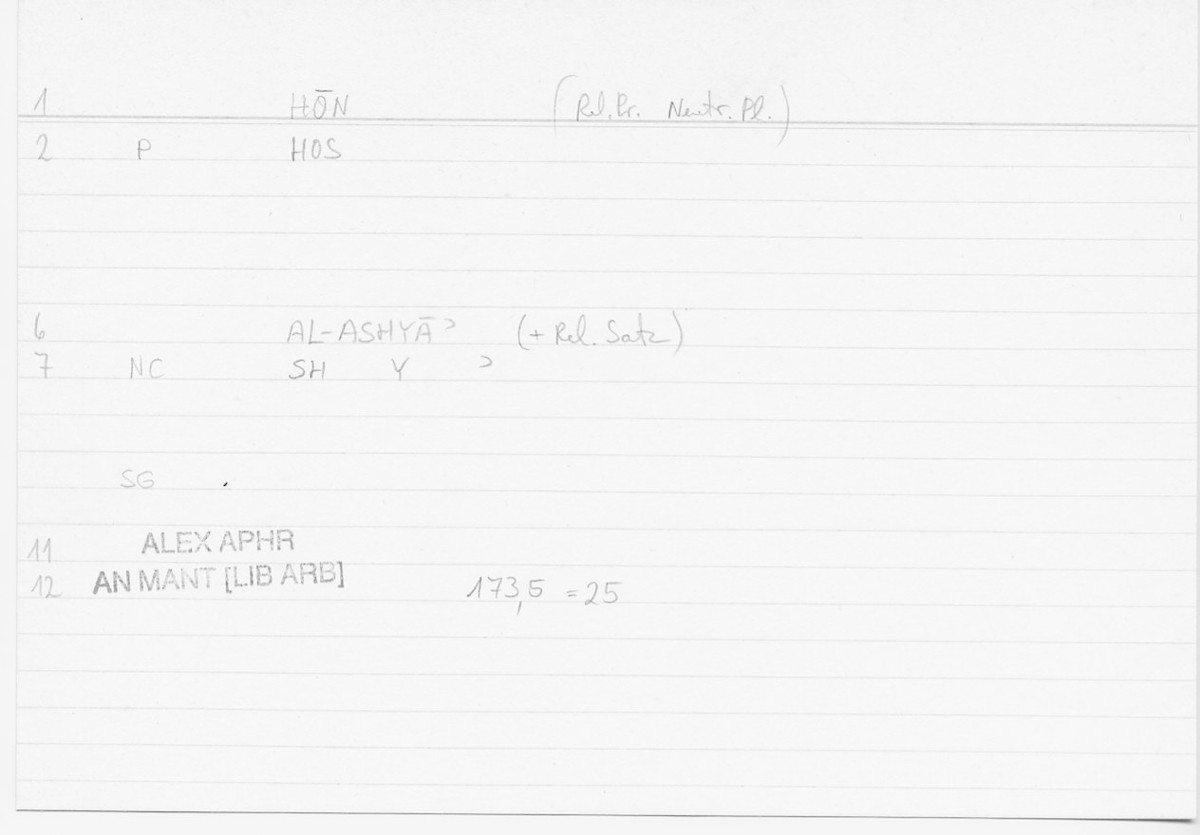 1 HŌN (Rel. Pr. Neutr. Pl.)
2 P HOS
6 AL-ASHYĀʾ (+ Rel. Satz)
7 NC SH Y ʾ
SG .
11 ALEX APHR
12 AN MANT [LIB ARB] 173,5 = 25